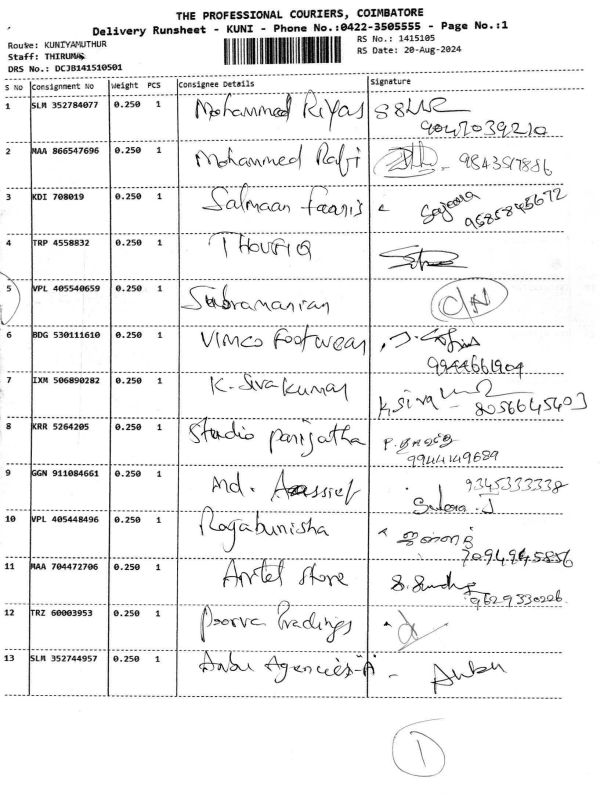 THE PROFESSIONAL COURIERS, COIMBATORE
Delivery Runsheet - KUNI - Phone No.:0422-3505555 - Page No.:1
Route: KUNIYAMUTHUR RS No.: 1415105
Staff: THIRUMA RS Date: 20-Aug-2024
DRS No.: DCJB141510501
S No Consignment No Weight PCS Consignee Details Signature
1 SLM 352784077 0.250 1 Mohammed Riyas
9047039210
2 MAA 866547696 0.250 1 Mohammed Rafi
3 KDI 708019 0.250 1 Salmaan faaris
9585845672
4 TRP 4558832 0.250 1 THOUFIQ
5 VPL 405540659 0.250 1 Subramanian
6 BDG 530111610 0.250 1 Vimco Footwear
9944661904
7 IXM 506890282 0.250 1 K. Sivakumar 8056645403
8 KRR 5264205 0.250 1 Studio parijatha
9944149689
9 GGN 911084661 0.250 1 Md. Aassief 9345333338
10 VPL 405448496 0.250 1 Rogabunisha
7094945856
11 MAA 704472706 0.250 1 Airtel store
9629330226
12 TRZ 60003953 0.250 1 Poorva Tradings
13 SLM 352744957 0.250 1 Anbu Agencies-"A" - Anbu
1